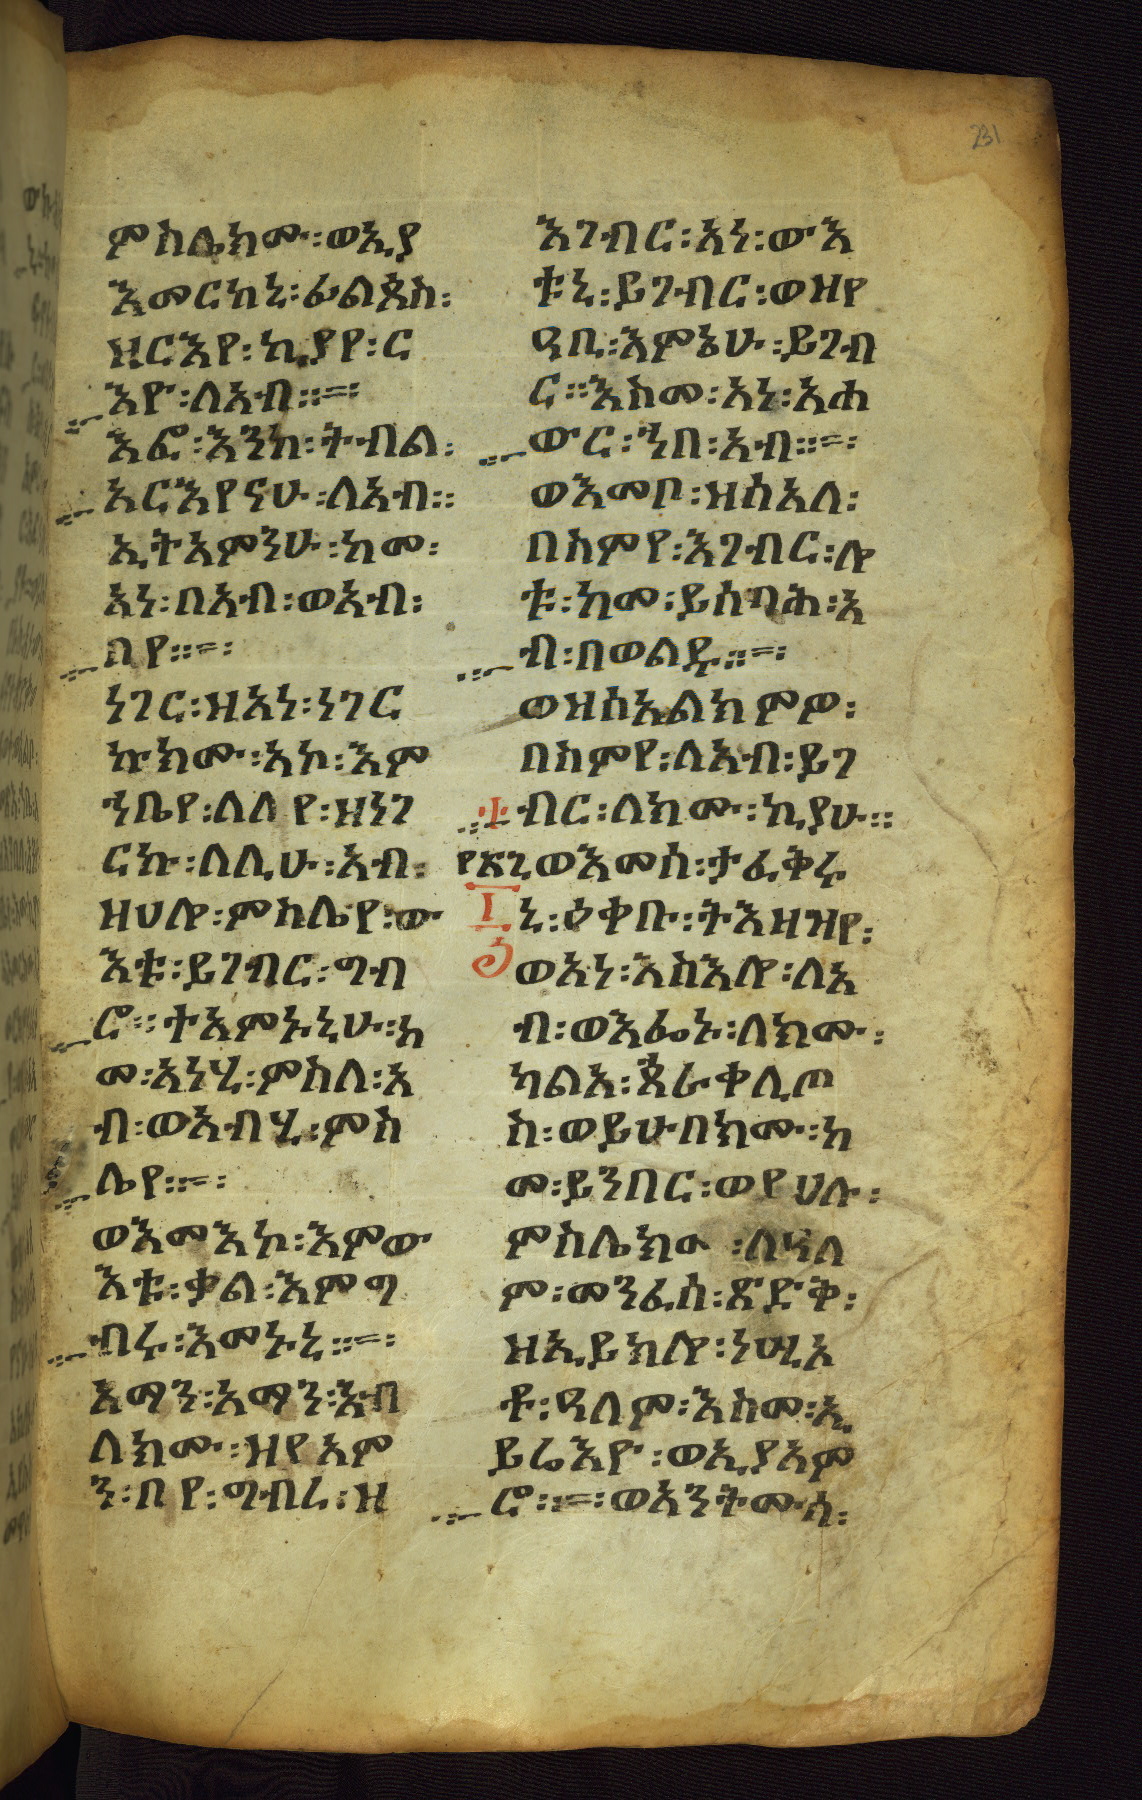 231
ምስሌክሙ፡ወኢያ
እመርከኒ፡ፊልጶስ፡
ዝርእየ፡ኪያየ፡ር
እዮ፡ለአብ።=፡
እፎ፡እንከ፡ትብል፡
አርእየናሁ፡ለአብ።
ኢትአምንሁ፡ከመ፡
አነ፡በአብ፡ወአብ፡
ብየ።=፡
ነገር፡ዝአነ፡ነገር
ኩክሙ፡አኮ፡እም
ኀቤየ፡ለልየ፡ዘነገ
ርኩ፡ለሊሁ፡አብ፡
ዘሀሎ፡ምስሌየ፡ው
እቱ፡ይገብር፡ግብ
ሮ።ተአምኑኒሁ፡ከ
መ፡አነሂ፡ምስለ፡አ
ብ፡ወአብሂ፡ምስ
ሌየ።=፡
ወእመአኮ፡እምው
እቱ፡ቃል፡እምግ
ብሩ፡እመኑኒ።=፡
አማን፡አማን፡እብ
ለክሙ፡ዝየአም
ን፡ብየ፡ግብረ፡ዘ
እገብር፡አነ፡ውእ
ቱኒ፡ይገብር፡ወዝየ
ዓቢ፡እምኔሁ፡ይገብ
ር።እስመ፡አነ፡አሐ
ውር፡ኀበ፡አብ።=፡
ወእመቦ፡ዝስአለ፡
በስምየ፡እገብር፡ሎ
ቱ፡ከመ፡ይሰባሕ፡አ
ብ፡በወልዱ።=፡
ወዝስአልክምዎ፡
በስምየ፡ለአብ፡ይገ
ብር፡ለክሙ፡ኪያሁ።
ወእመሰ፡ታፈቅሩ
ኒ፡ዕቀቡ፡ትእዛዝየ፡
ወአነ፡አስእሎ፡ለአ
ብ፡ወእፌኑ፡ለክሙ፡
ካልአ፡ጰራቀሊጦ
ስ፡ወይሁበክሙ፡ከ
መ፡ይንበር፡ወየሀሉ፡
ምስሌክሙ፡ለዓለ
ም፡መንፈሰ፡ጽድቅ፡
ዝኢይክሎ፡ነሢአ
ቶ፡ዓለም፡እስመ፡ኢ
ይሬእዮ፡ወኢያአም
ሮ።=፡ወአንትሙሰ፡